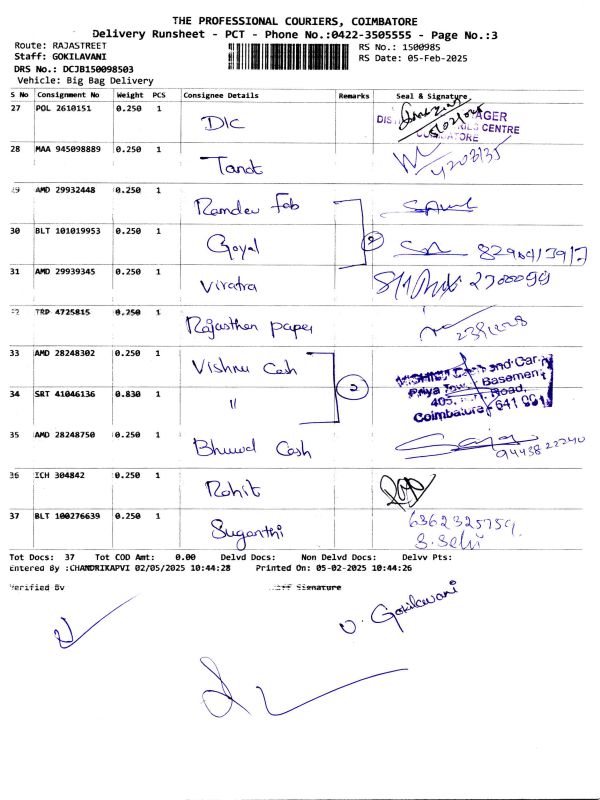 THE PROFESSIONAL COURIERS, COIMBATORE
Delivery Runsheet - PCT - Phone No.:0422-3505555 - Page No.:3
Route: RAJASTREET
RS No.: 1500985
Staff: GOKILAVANI
RS Date: 05-Feb-2025
DRS No.: DCJB150098503
Vehicle: Big Bag Delivery
S No Consignment No Weight PCS Consignee Details Remarks Seal & Signature
27 POL 2610151 0.250 1 DIC
CENTRE
28 MAA 945098889 0.250 1
29 AMD 29932448 0.250 1 Ramdev Fab
30 BLT 101019953 0.250 1 Goyal
31 AMD 29939345 0.250 1
32 TRP 4725815 0.250 1 Rajasthan paper
33 AMD 28248302 0.250 1 Vishnu Cash
34 SRT 41046136 0.830 1 "
Priya Basement
405, Road,
Coimbatore - 641 001
35 AMD 28248750 0.250 1 Cash
94438 22240
36 ICH 304842 0.250 1 Rohit
37 BLT 100276639 0.250 1 Suganthi 6362325759
S. Selvi
Tot Docs: 37 Tot COD Amt: 0.00 Delvd Docs: Non Delvd Docs: Delvv Pts:
Entered By :CHANDRIKAPVI 02/05/2025 10:44:28 Printed On: 05-02-2025 10:44:26
Verified By Staff Signature
V. Gokilavani